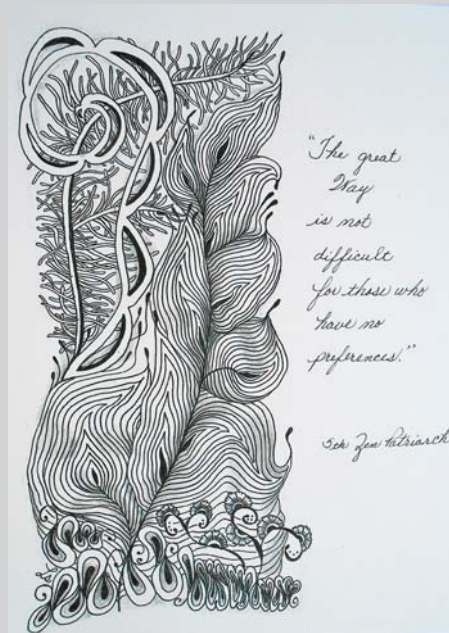 "The great
Way
is not
difficult
for those who
have no
preferences."
5th Zen Patriarch